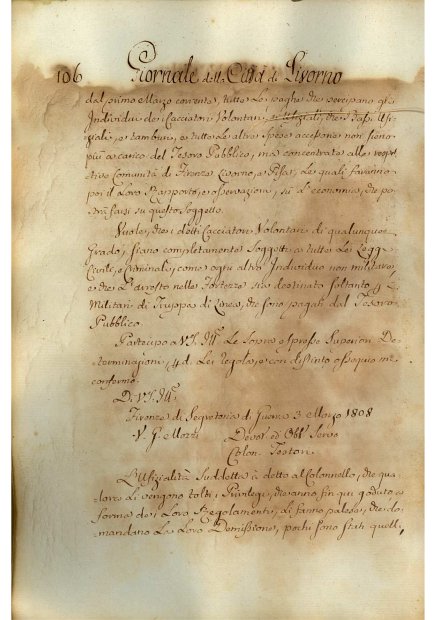 106 Giornale della Città di Livorno
dal primo Marzo corrente, tutte le paghe che percipano gli
Individui de Cacciatori Volontari, e Ufiziali, che Bass' Ufi-
ziali, e tamburi, e tutte le altre spese accessorie non sieno
più a carico del Tesoro Pubblico, ma concentrate alle respet-
tive Comunità di Firenze Livorno, e Pisa, le quali faranno
poi il Loro Rapporto, e osservazioni, su l'economia, che po-
trà farsi su questo soggetto.
Vuole, che i detti Cacciatori Volontari di qualunque
Grado, siano completamente soggetti a tutte le Leggi
Civile, e Criminali, come ogni altro Individuo non militare,
e che l'arresto nelle Fortezze sia destinato soltanto a i
Militari di Truppa di Linea, che sono pagati dal Tesoro
Pubblico.
Partecipo a V. S. Ill. Le sopra espresse Superiori De-
terminazioni, di Lei Regola, e con distinto ossequio mi
confermo.
Di V. S. Ill.
Firenze di Segreteria di Guerra 3 Marzo 1808
V. G. Devot. ed Obbl. Servo
Colon. Testori
L'Ufizialità Suddetta à detto al Colonnello, che qua-
lora li vengono tolti i Privilegi, che anno fin qui goduto, a
forma de i Loro Regolamenti, di fanno palese, che do-
mandano La Loro Demissione, pochi sono stati quelli,